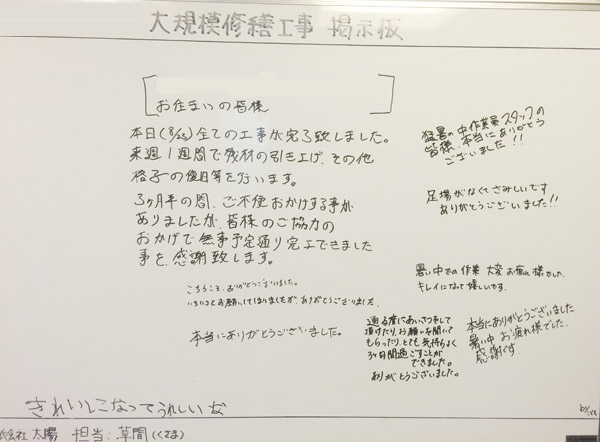 大規模修繕工事 掲示板
お住まいの皆様
本日(8/23)全ての工事が完了致しました。
来週1週間で残材の引き上げ、その他
格子の復旧等を行います。
3ヶ月半の間、ご不便おかけする事が
ありましたが、皆様のご協力の
おかげで無事予定通り完工できました
事を、感謝致します。
こちらこそ、ありがとうございました。
いろいろとお願いしてしまいましたが、ありがとうございました
本当にありがとうございました。
猛暑の中作業員スタッフの
皆様、本当にありがとう
ございました!!
足場がなくてさみしいです
ありがとうございました!!
暑い中での作業 大変お疲れ様でした。
キレイになって嬉しいです。
通る度にあいさつをして
頂けたり、お願いを聞いて
もらったり、とても気持ちよく
3ヶ月間過ごすことが
できました。
ありがとうございました。
本当にありがとうございました
暑い中 お疲れ様でした。
感謝です
きれいになってうれしいな
式会社 太陽 担当:草間(くさま)